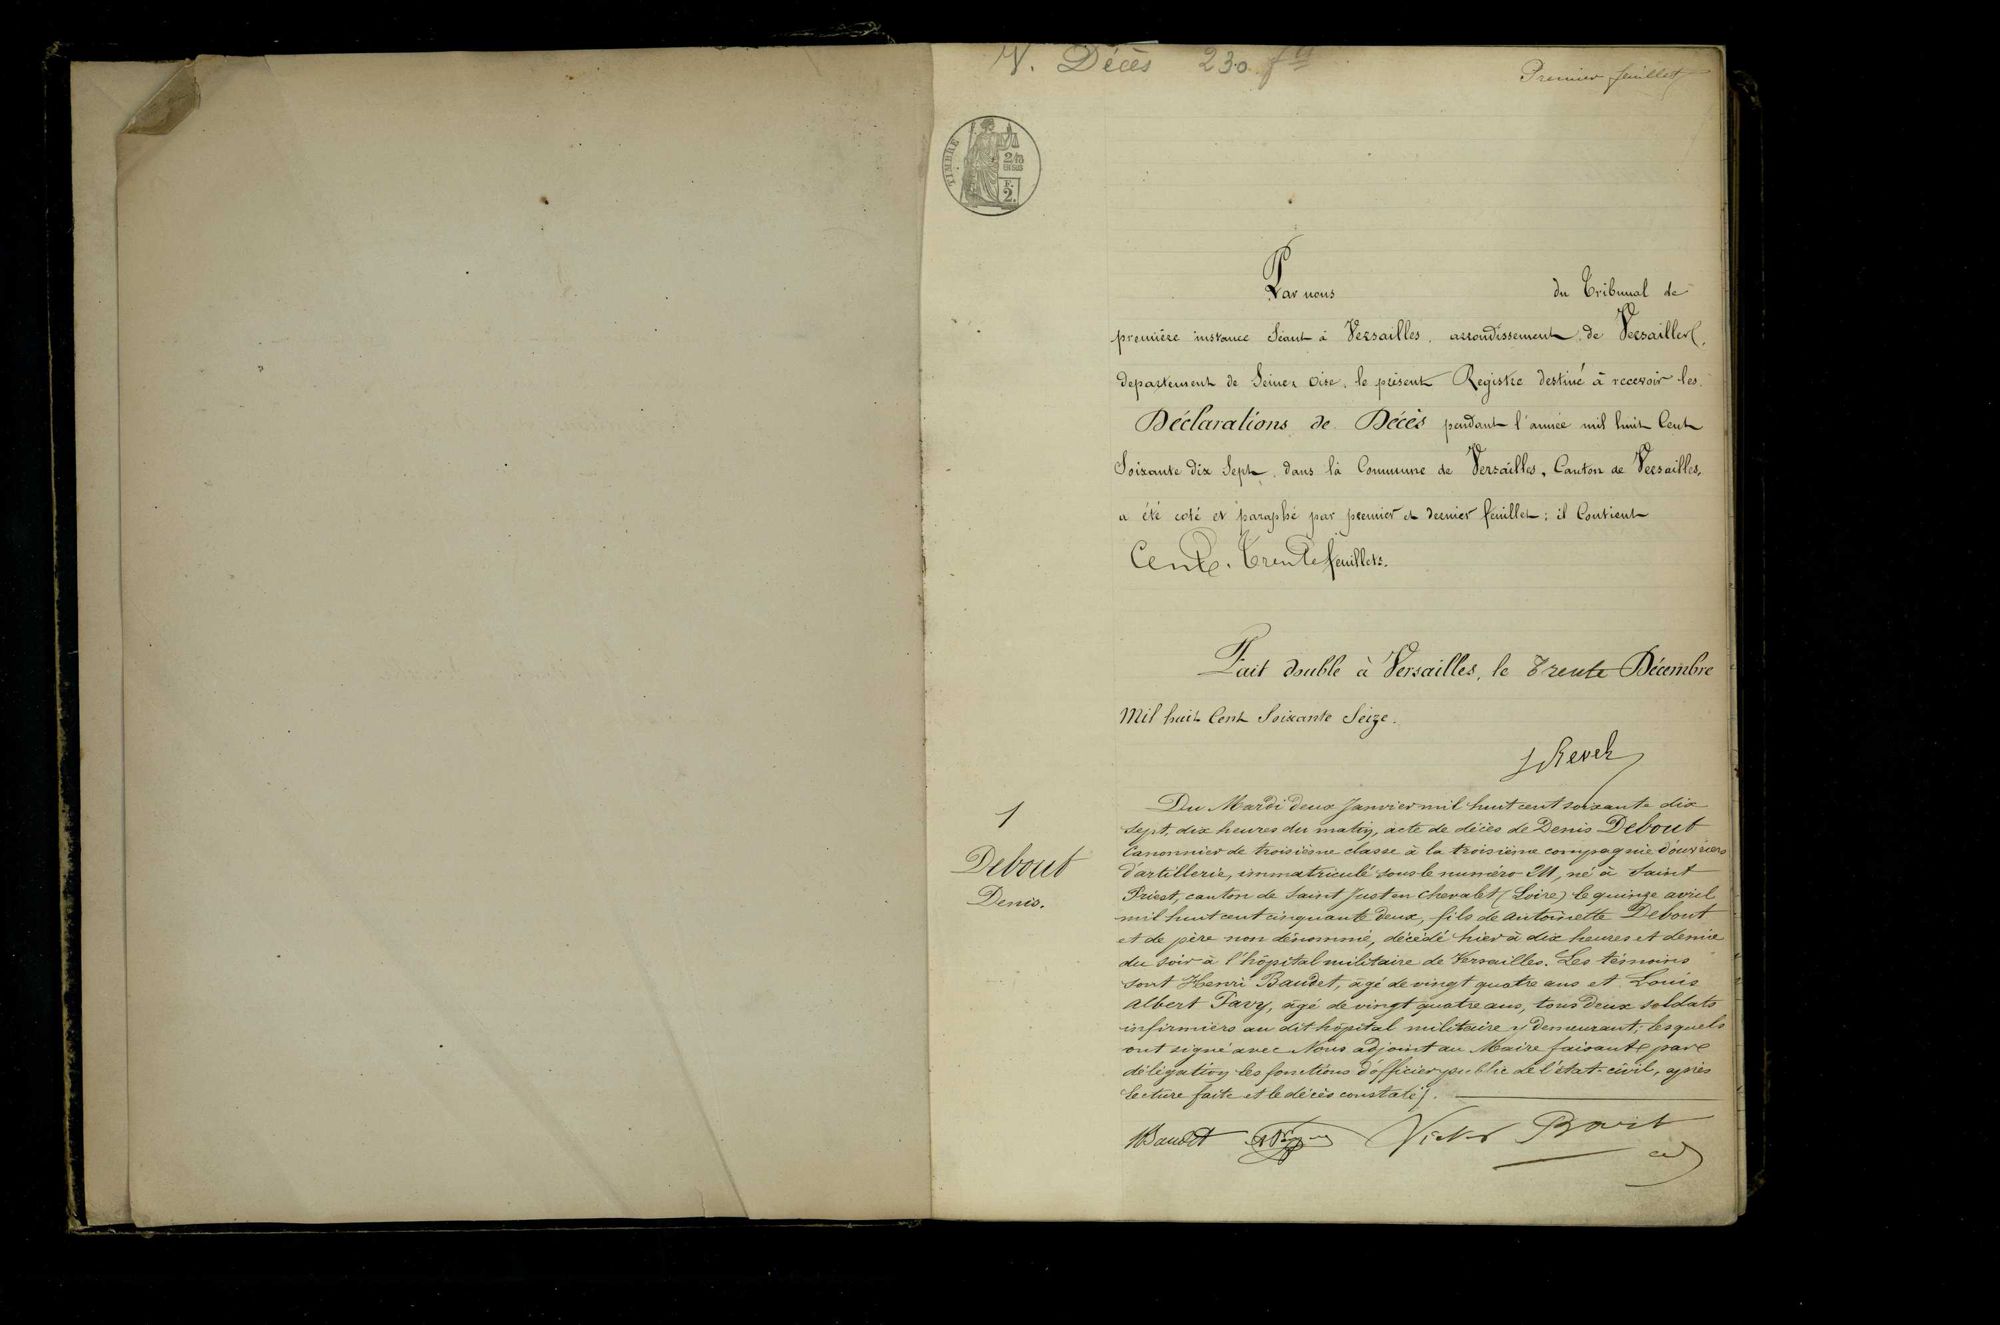 N. Décès 230 f
Premier feuillet
TIMBRE
2/10
EN SUS
F.
2.
Par nous du Tribunal de
première instance Séant à Versailles, arrondissement de Versailles,
département de Seine & Oise, le présent Registre destiné à recevoir les
Déclarations de Décès pendant l'année mil huit Cent
Soixante dix Sept, dans la Commune de Versailles, Canton de Versailles,
a été coté et paraphé par premier et dernier feuillet; il Contient
Cent Trente feuillets.
Fait double à Versailles, le Trente Décembre
Mil huit Cent Soixante Seize.
1
Debout
Denis.
Du Mardi deux Janvier mil huit cent soixante dix
sept, dix heures du matin, acte de décès de Denis Debout
Canonnier de troisième classe à la troisième compagnie d'ouvriers
d'artillerie, immatriculé sous le numéro 211, né à Saint
Priest, canton de Saint Just en Chevalet (Loire) le quinze avril
mil huit cent cinquante deux, fils de Antoinette Debout
et de père non dénommé, décédé hier à dix heures et demie
du soir à l'hôpital militaire de Versailles. Les témoins
sont Henri Baudet, âgé de vingt quatre ans et Louis
Albert Favy, âgé de vingt quatre ans, tous deux soldats
infirmiers au dit hôpital militaire y demeurant; lesquels
ont signé avec Nous adjoint au Maire faisant par
délégation les fonctions d'officier public de l'état-civil, après
lecture faite et le décès constaté.
HBaudet Victor Bart